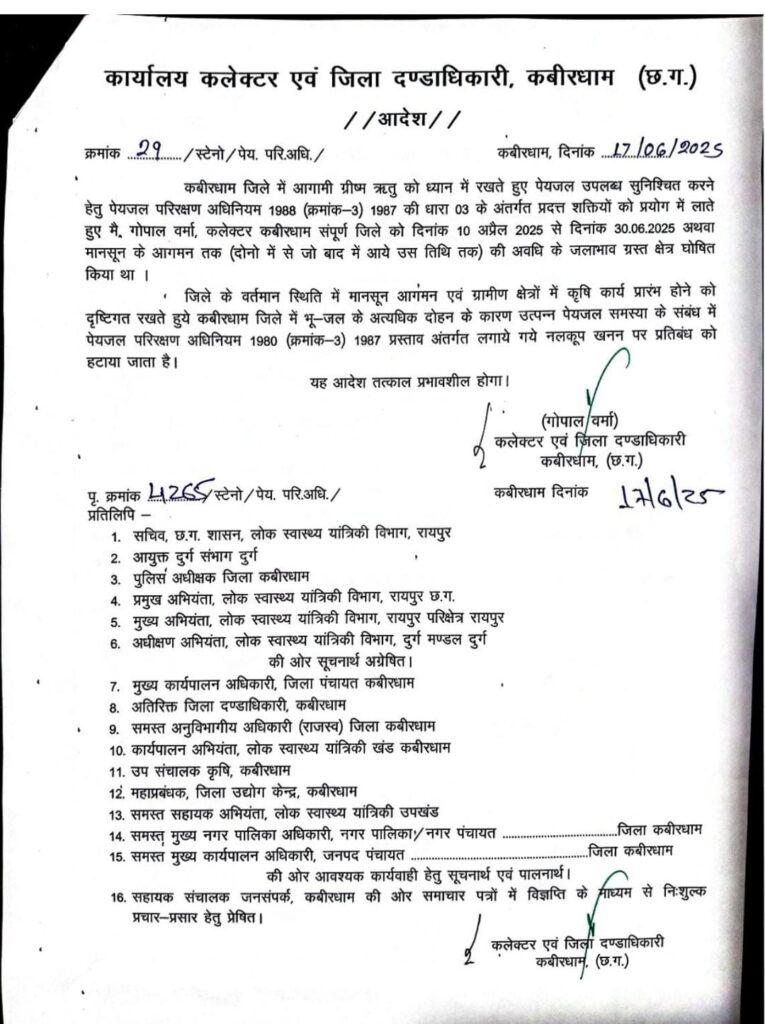 कार्यालय कलेक्टर एवं जिला दण्डाधिकारी, कबीरधाम (छ.ग.)
//आदेश//
क्रमांक 29/स्टेनो/पेय. परि.अधि./ कबीरधाम, दिनांक 17/06/2025
कबीरधाम जिले में आगामी ग्रीष्म ऋतु को ध्यान में रखते हुए पेयजल उपलब्ध सुनिश्चित करने
हेतु पेयजल परिरक्षण अधिनियम 1988 (क्रमांक–3) 1987 की धारा 03 के अंतर्गत प्रदत्त शक्तियों को प्रयोग में लाते
हुए मै, गोपाल वर्मा, कलेक्टर कबीरधाम संपूर्ण जिले को दिनांक 10 अप्रैल 2025 से दिनांक 30.06.2025 अथवा
मानसून के आगमन तक (दोनो में से जो बाद में आये उस तिथि तक) की अवधि के जलाभाव ग्रस्त क्षेत्र घोषित
किया था ।
जिले के वर्तमान स्थिति में मानसून आगमन एवं ग्रामीण क्षेत्रों में कृषि कार्य प्रारंभ होने को
दृष्टिगत रखते हुये कबीरधाम जिले में भू–जल के अत्यधिक दोहन के कारण उत्पन्न पेयजल समस्या के संबंध में
पेयजल परिरक्षण अधिनियम 1980 (क्रमांक–3) 1987 प्रस्ताव अंतर्गत लगाये गये नलकूप खनन पर प्रतिबंध को
हटाया जाता है।
यह आदेश तत्काल प्रभावशील होगा।
(गोपाल वर्मा)
कलेक्टर एवं जिला दण्डाधिकारी
कबीरधाम, (छ.ग.)
पृ. क्रमांक 4265/स्टेनो/पेय. परि.अधि./ कबीरधाम दिनांक 17/6/25
प्रतिलिपि –
1. सचिव, छ.ग. शासन, लोक स्वास्थ्य यांत्रिकी विभाग, रायपुर
2. आयुक्त दुर्ग संभाग दुर्ग
3. पुलिस अधीक्षक जिला कबीरधाम
4. प्रमुख अभियंता, लोक स्वास्थ्य यांत्रिकी विभाग, रायपुर छ.ग.
5. मुख्य अभियंता, लोक स्वास्थ्य यांत्रिकी विभाग, रायपुर परिक्षेत्र रायपुर
6. अधीक्षण अभियंता, लोक स्वास्थ्य यांत्रिकी विभाग, दुर्ग मण्डल दुर्ग
की ओर सूचनार्थ अग्रेषित।
7. मुख्य कार्यपालन अधिकारी, जिला पंचायत कबीरधाम
8. अतिरिक्त जिला दण्डाधिकारी, कबीरधाम
9. समस्त अनुविभागीय अधिकारी (राजस्व) जिला कबीरधाम
10. कार्यपालन अभियंता, लोक स्वास्थ्य यांत्रिकी खंड कबीरधाम
11. उप संचालक कृषि, कबीरधाम
12. महाप्रबंधक, जिला उद्योग केन्द्र, कबीरधाम
13. समस्त सहायक अभियंता, लोक स्वास्थ्य यांत्रिकी उपखंड
14. समस्त मुख्य नगर पालिका अधिकारी, नगर पालिका/नगर पंचायत ..............................जिला कबीरधाम
15. समस्त मुख्य कार्यपालन अधिकारी, जनपद पंचायत ..............................................जिला कबीरधाम
की ओर आवश्यक कार्यवाही हेतु सूचनार्थ एवं पालनार्थ।
16. सहायक संचालक जनसंपर्क, कबीरधाम की ओर समाचार पत्रों में विज्ञप्ति के माध्यम से निःशुल्क
प्रचार–प्रसार हेतु प्रेषित।
कलेक्टर एवं जिला दण्डाधिकारी
कबीरधाम, (छ.ग.)